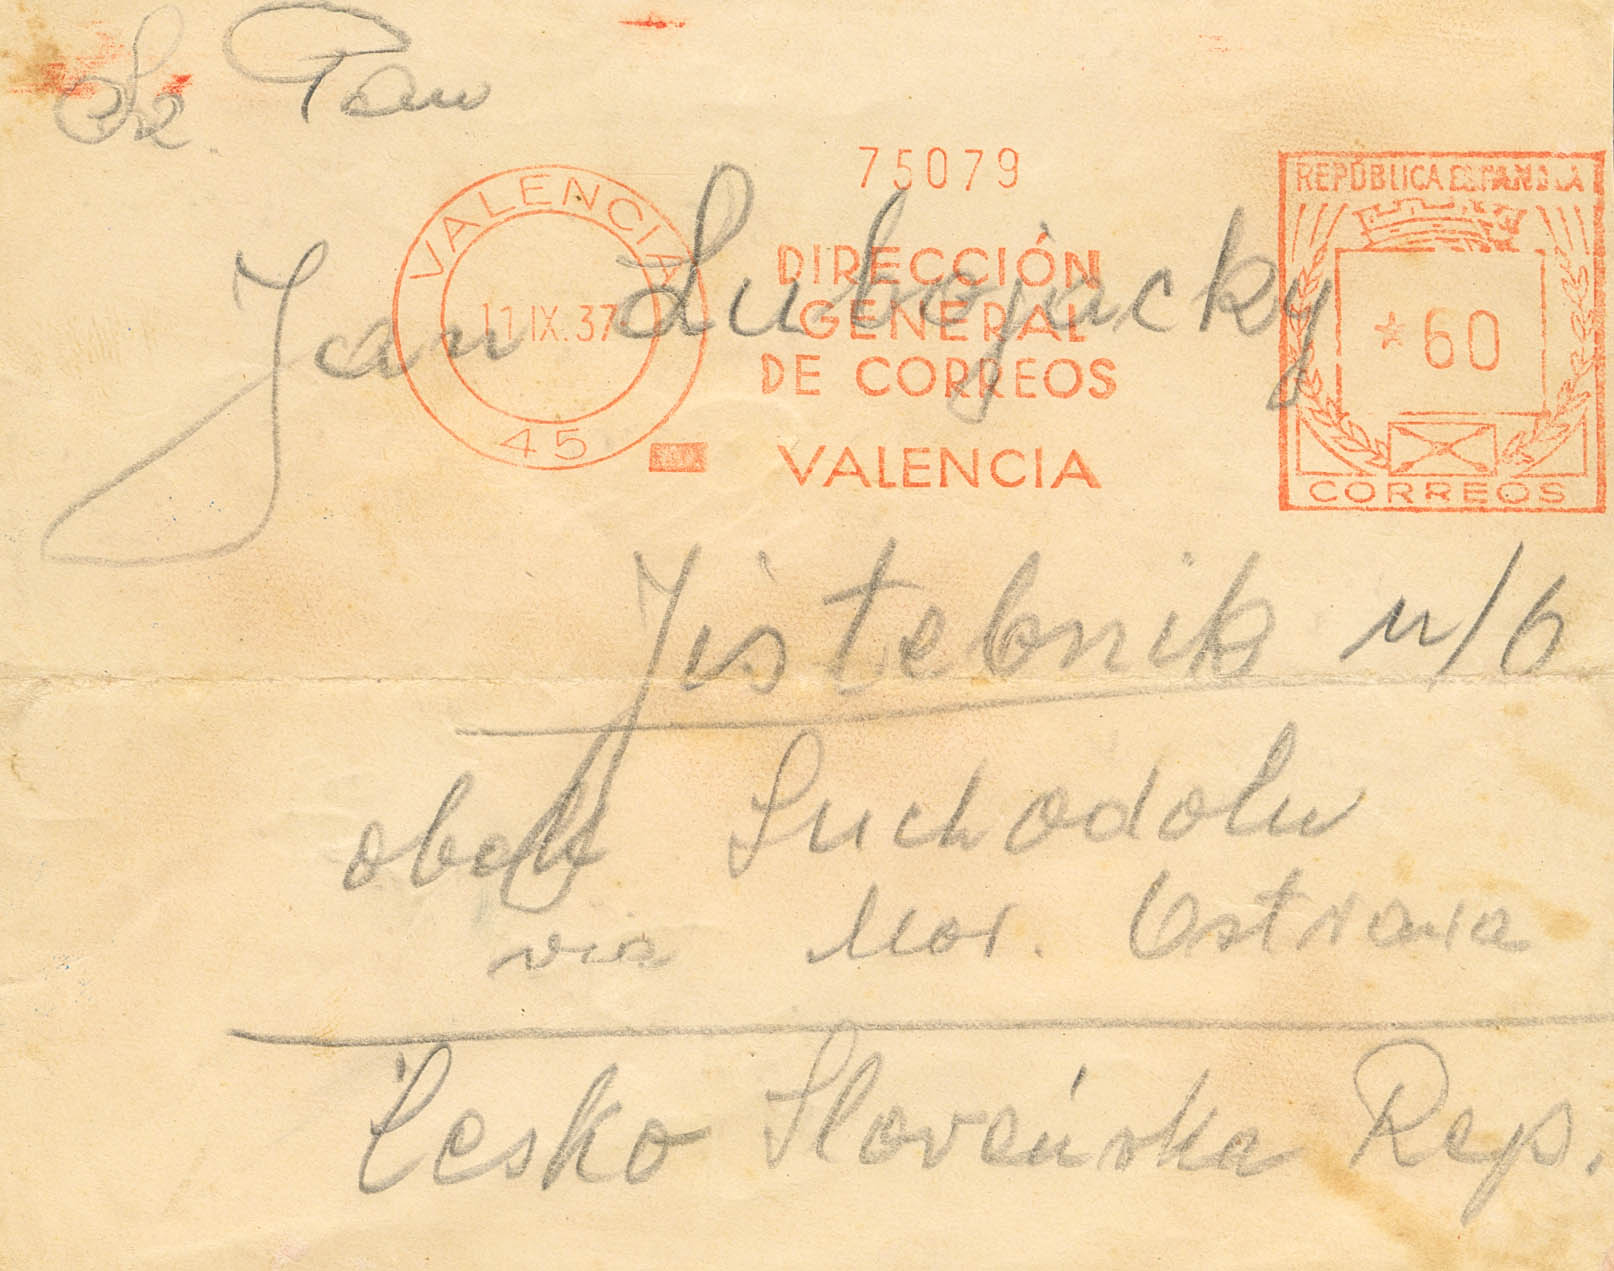 Pan
75079
Jan Lubojacky
VALENCIA
11 IX. 37
45
DIRECCIÓN
GENERAL
DE CORREOS
VALENCIA
REPÚBLICA ESPAÑOLA
*60
CORREOS
Jistebnik n/O
obch Suchodolu
via Mor. Ostrawa
Česko Slovenska Rep.